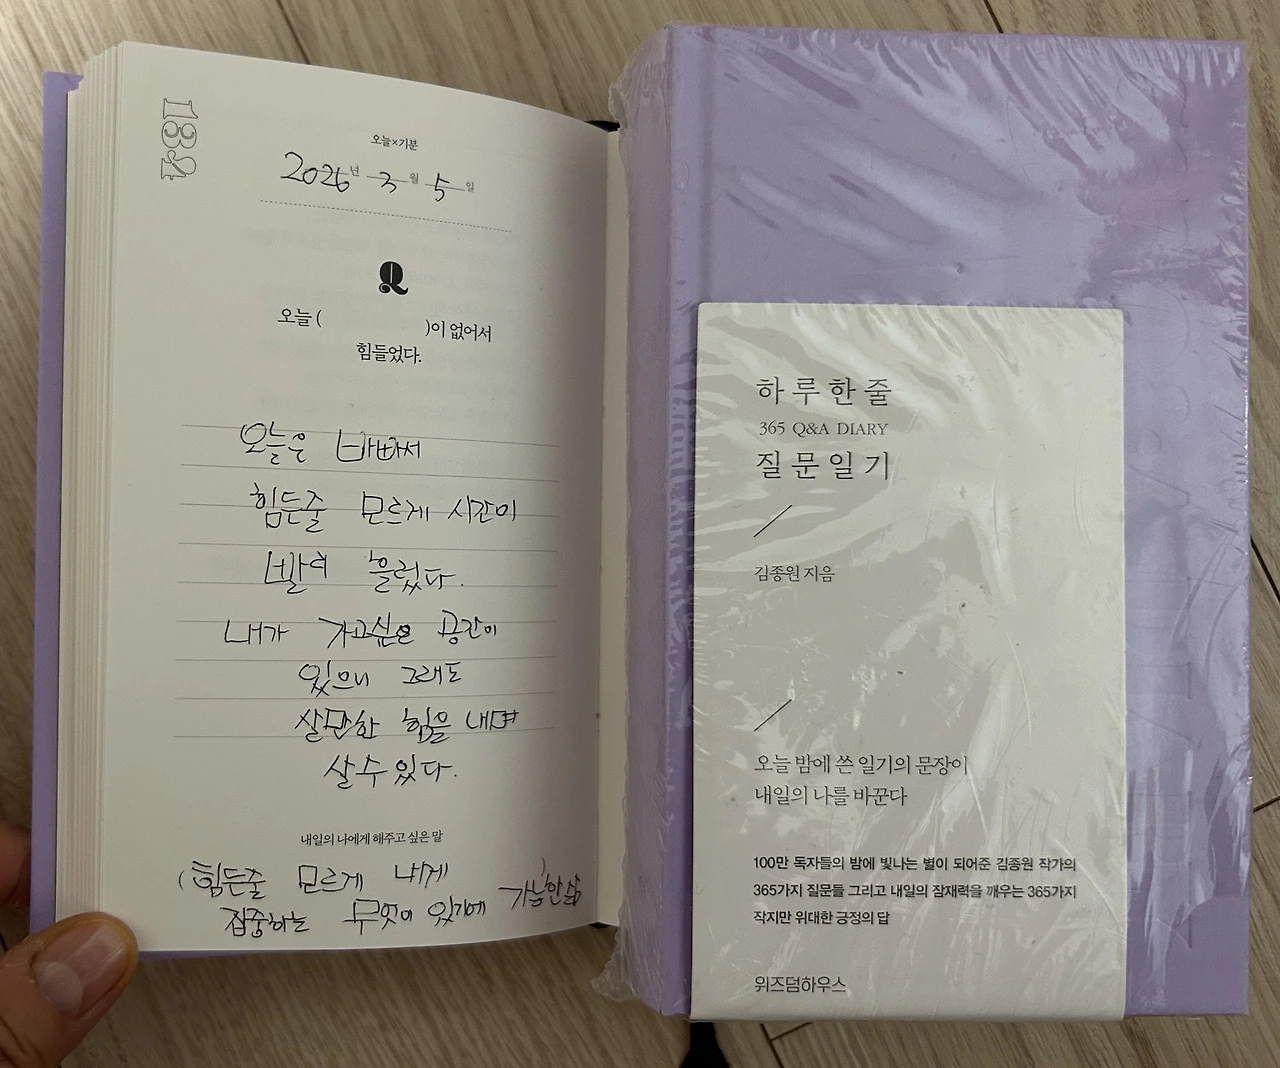 134
오늘×기분
2026년 3월 5일
Q
오늘 ( )이 없어서
힘들었다.
오늘은 바빠서
힘든줄 모르게 시간이
빨리 흘렀다.
내가 가고싶은 공간이
있으니 그래도
살만한 힘을 내며
살수 있다.
내일의 나에게 해주고 싶은 말
(힘든줄 모르게 나에게
집중하는 무엇이 있기에 가능한 삶)
하루 한 줄
365 Q&A DIARY
질문일기
김종원 지음
오늘 밤에 쓴 일기의 문장이
내일의 나를 바꾼다
100만 독자들의 밤에 빛나는 별이 되어준 김종원 작가의
365가지 질문들 그리고 내일의 잠재력을 깨우는 365가지
작지만 위대한 긍정의 답
위즈덤하우스